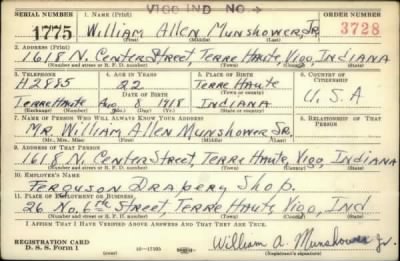 VIGO IND NO →
SERIAL NUMBER 1. NAME (Print) ORDER NUMBER
1775 William Allen Munshower Jr. 3728
(First) (Middle) (Last)
2. ADDRESS (Print)
1618 N. Center Street, Terre Haute, Vigo, Indiana
(Number and street or R. F. D. number) (Town) (County) (State)
3. TELEPHONE 4. AGE IN YEARS 5. PLACE OF BIRTH 6. COUNTRY OF CITIZENSHIP
H2885 22 Terre Haute
DATE OF BIRTH (Town or county) U.S.A
Terre Haute Aug 8 1918 Indiana
(Exchange) (Number) (Mo.) (Day) (Yr.) (State or country)
7. NAME OF PERSON WHO WILL ALWAYS KNOW YOUR ADDRESS 8. RELATIONSHIP OF THAT PERSON
Mr. William Allen Munshower Sr.
(Mr., Mrs., Miss) (First) (Middle) (Last)
9. ADDRESS OF THAT PERSON
1618 N. Center Street, Terre Haute, Vigo, Indiana
(Number and street or R. F. D. number) (Town) (County) (State)
10. EMPLOYER'S NAME
Ferguson Drapery Shop.
11. PLACE OF EMPLOYMENT OR BUSINESS
26 No. 6th Street, Terre Haute, Vigo, Ind
(Number and street or R. F. D. number) (Town) (County) (State)
I AFFIRM THAT I HAVE VERIFIED ABOVE ANSWERS AND THAT THEY ARE TRUE.
REGISTRATION CARD
D. S. S. Form 1 16—17105
William A. Munshower Jr.